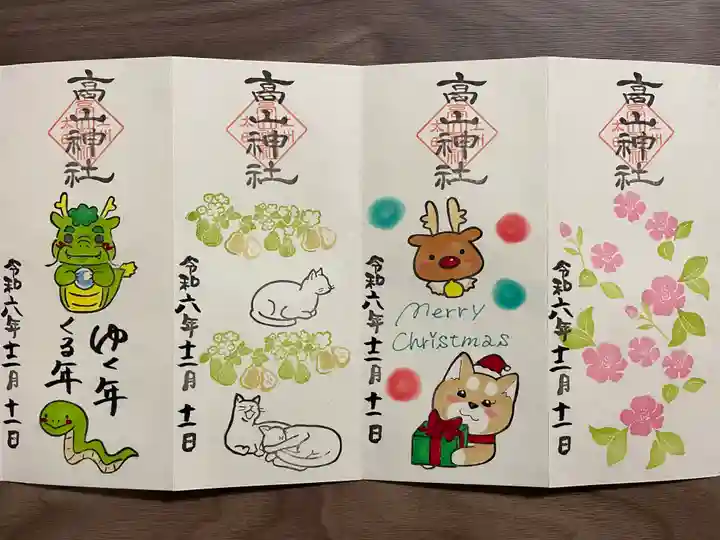 高山神社
令和六年十二月十一日
ゆく年
くる年
高山神社
令和六年十二月十一日
高山神社
令和六年十二月十一日
Merry
Christmas
高山神社
令和六年十二月十一日